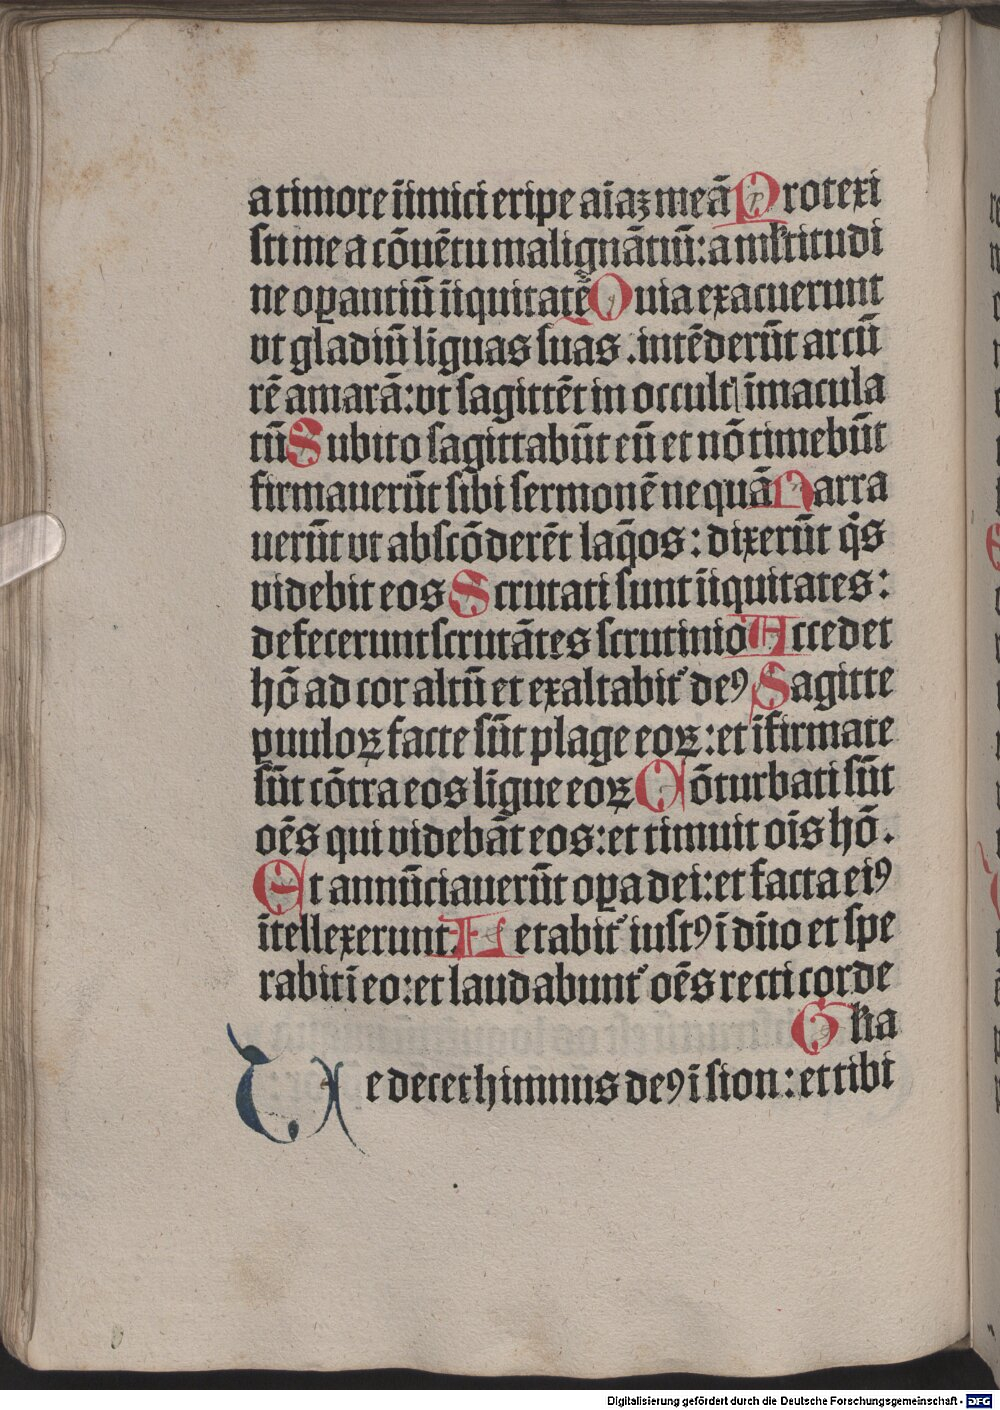 a timore iimici eripe aiaz meā Protexi
sti me a cōuētu malignātiū: a mltitudi
ne oꝑantiū iiquitatē Quia exacuerunt
vt gladiū liguas suas . intēderūt arcū
rē amarā: vt sagittēt in occult īmacula
tū Subito sagittabūt eū et nō timebūt
firmauerūt sibi sermonē nequā Narra
uerūt vt abscōderēt laq̄os: dixerūt q̇s
videbit eos Scrutati sunt iiquitates:
defecerunt scrutātes scrutinio Accedet
hō ad cor altū et exaltabit᷑ deꝰ Sagitte
ꝑuuloꝝ facte sūt plage eoꝝ: et īfirmate
sūt cōtra eos līgue eoꝝ Cōturbati sūt
oēs qui videbāt eos: et timuit oīs hō.
Et annūciauerūt oꝑa dei: et facta eiꝰ
ītellexerunt. Letabit᷑ iustꝰ ī dn̄o et spe
rabit ī eo: et laudabunt᷑ oēs recti corde
Gl̄ia
Te decet himnus deꝰ ī sion: et tibi
Digitalisierung gefördert durch die Deutsche Forschungsgemeinschaft - DFG